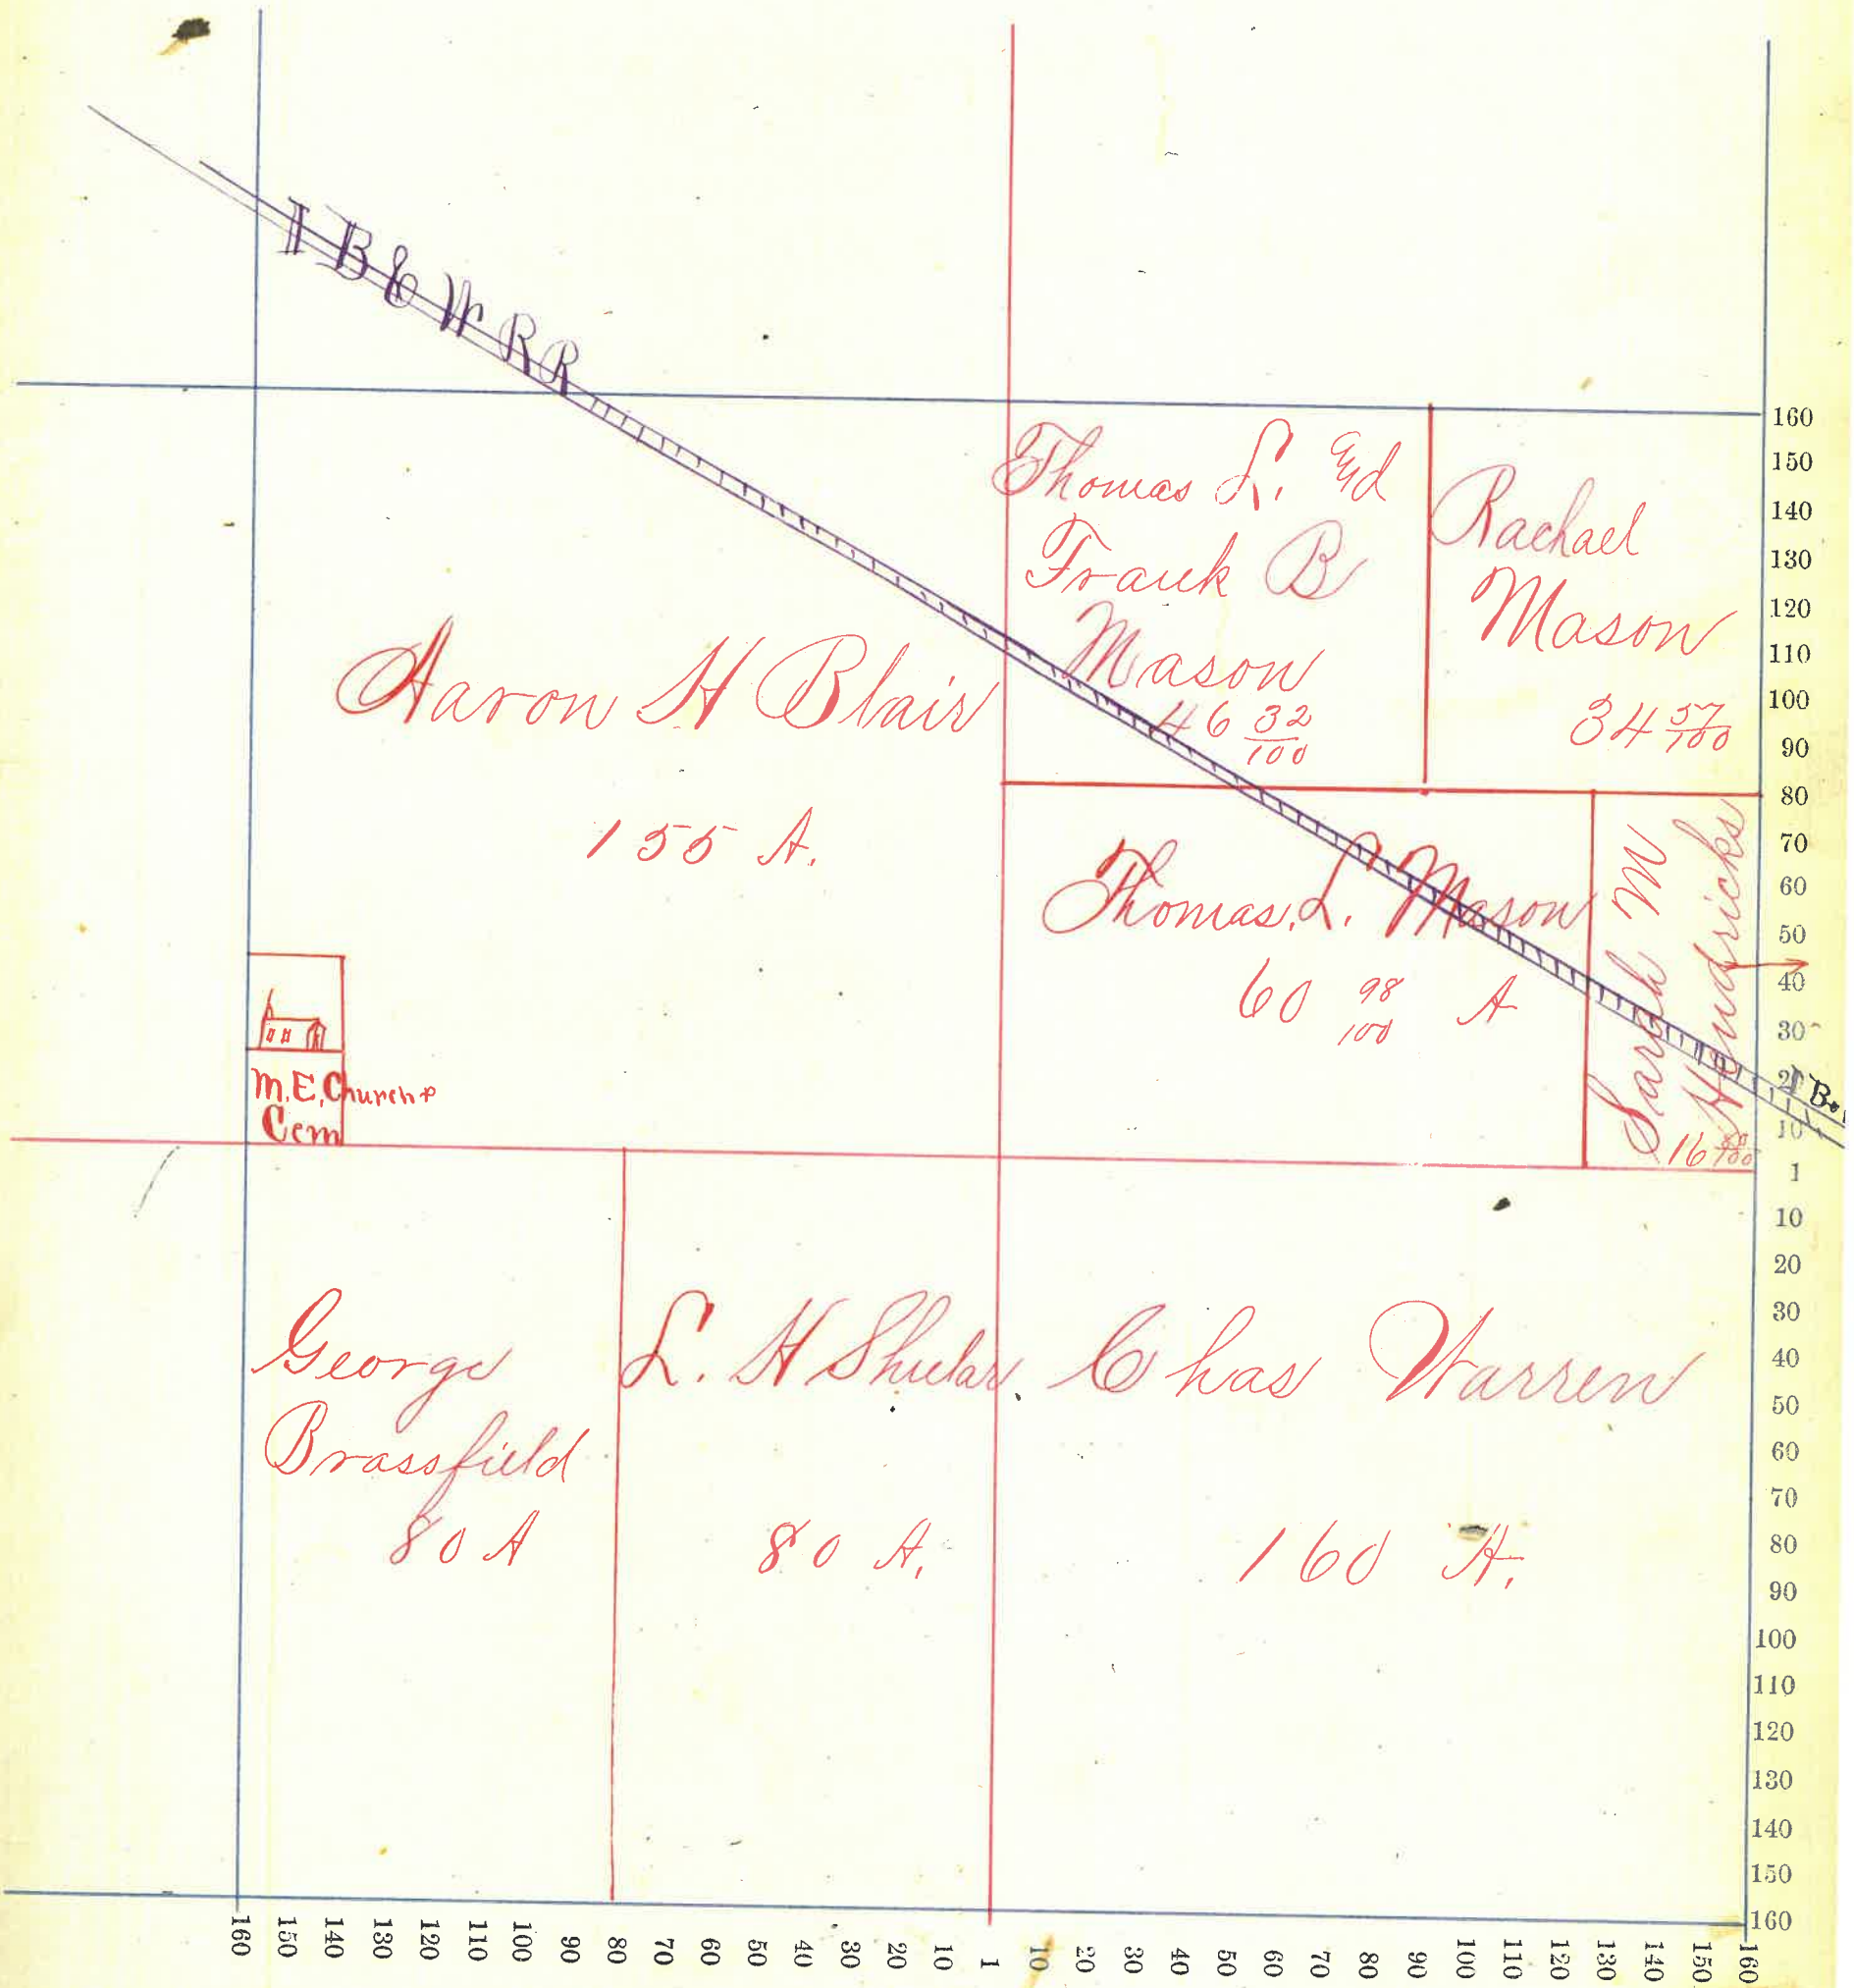 I B & W R R
Thomas L. and
Frank B
Mason
46 32/100
Rachael
Mason
34 57/100
Aaron H Blair
155 A.
Thomas. L. Mason
60 98/100 A
Sarah M
Hendricks
16 80/100
M.E. Church &
Cem
I B &
George
Brassfield
80 A
L. H
80 A.
Chas Warren
160 A.
160
150
140
130
120
110
100
90
80
70
60
50
40
30
20
10
1
10
20
30
40
50
60
70
80
90
100
110
120
130
140
150
160
160 150 140 130 120 110 100 90 80 70 60 50 40 30 20 10 1 10 20 30 40 50 60 70 80 90 100 110 120 130 140 150 160